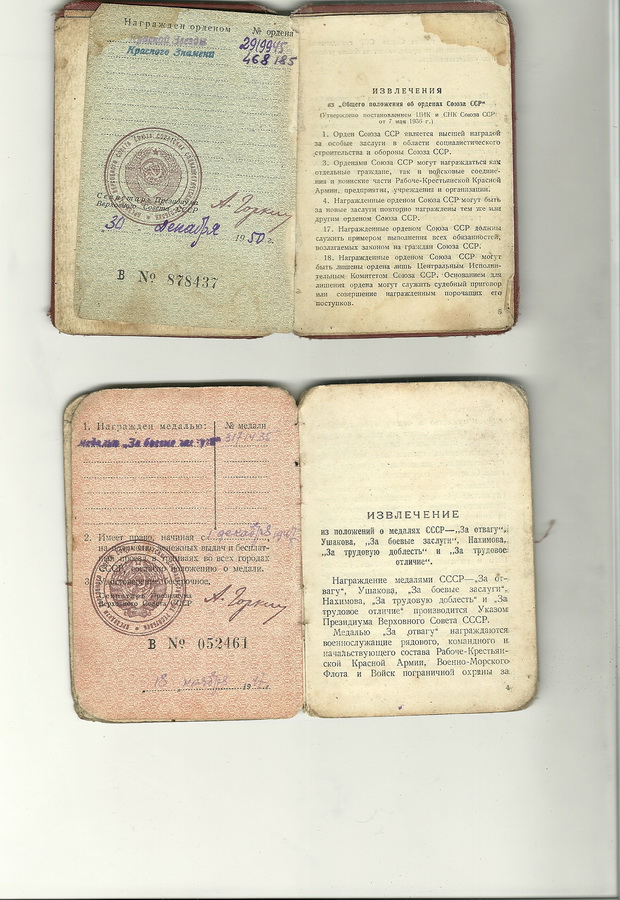 Награжден орденом
№ ордена
Красной Звезды
2919945
Красного Знамени
468185
Секретарь Президиума
Верховного Совета СССР
А. Горкин
30 декабря 1950 г.
В № 878437
ИЗВЛЕЧЕНИЯ
из „Общего положения об орденах Союза ССР“
(Утверждено постановлением ЦИК и СНК Союза ССР
от 7 мая 1936 г.)
1. Орден Союза ССР является высшей наградой
за особые заслуги в области социалистического
строительства и обороны Союза ССР.
3. Орденами Союза ССР могут награждаться как
отдельные граждане, так и войсковые соедине-
ния и воинские части Рабоче-Крестьянской Красной
Армии, предприятия, учреждения и организации.
4. Награжденные орденом Союза ССР могут быть
за новые заслуги повторно награждены тем же или
другим орденом Союза ССР.
17. Награжденные орденом Союза ССР должны
служить примером выполнения всех обязанностей,
возлагаемых законом на граждан Союза ССР.
18. Награжденные орденом Союза ССР могут
быть лишены ордена лишь Центральным Исполни-
тельным Комитетом Союза ССР. Основанием для
лишения ордена могут служить судебный приговор
или совершение награжденным порочащих его
поступков.
6
1. Награжден медалью:
№ медали
медалью „За боевые заслуги“
2. Имеет право, начиная с 1 декабря 1947
на денежных выдач и бесплат-
проезд в трамваях во всех городах
СССР, согласно положению о медали.
3. Удостоверение бессрочное.
Секретарь Президиума
Верховного Совета СССР
А. Горкин
В № 052461
18 ноября 1947 г.
ИЗВЛЕЧЕНИЕ
из положений о медалях СССР—„За отвагу“,
Ушакова, „За боевые заслуги“, Нахимова,
„За трудовую доблесть“ и „За трудовое
отличие“.
Награждение медалями СССР—„За от-
вагу“, Ушакова, „За боевые заслуги“,
Нахимова, „За трудовую доблесть“ и „За
трудовое отличие“ производится Указом
Президиума Верховного Совета СССР.
Медалью „За отвагу“ награждаются
военнослужащие рядового, командного и
начальствующего состава Рабоче-Крестьян-
ской Красной Армии, Военно-Морского
Флота и Войск пограничной охраны за
4